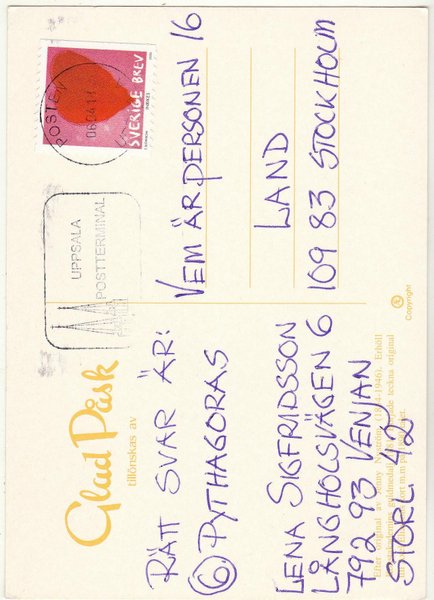 Glad Påsk
tillönskas av
RÄTT SVAR ÄR:
⑥ PYTHAGORAS
LENA SIGFRIDSSON
LÅNGHOLSVÄGEN 6
792 93 VENJAN
STORL 42
POSTEN
SVERIGE BREV
UPPSALA
POSTTERMINAL
VEM ÄR PERSONEN 16
LAND
109 83 STOCKHOLM
© Copyright